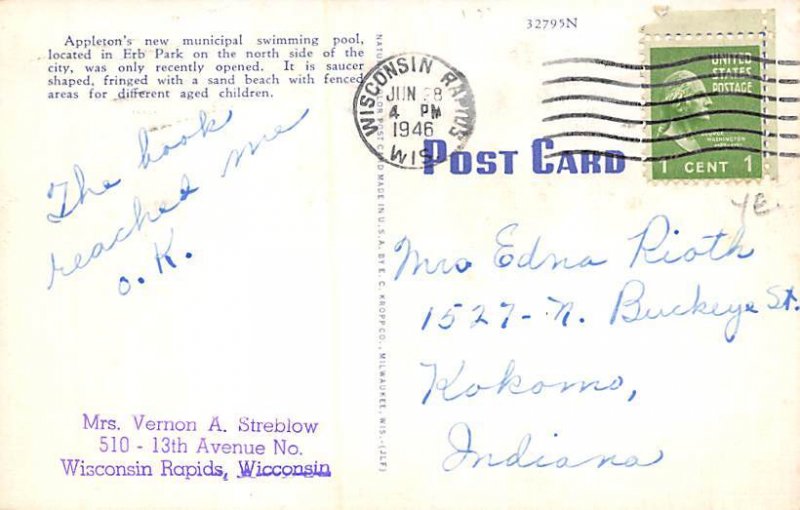 Appleton's new municipal swimming pool,
located in Erb Park on the north side of the
city, was only recently opened. It is saucer
shaped, fringed with a sand beach with fenced
areas for different aged children.
The book
reached me
O.K.
Mrs. Vernon A. Streblow
510 - 13th Avenue No.
Wisconsin Rapids, Wicconsin
NATURAL COLOR POST CARD MADE IN U.S.A. BY E. C. KROPP CO., MILWAUKEE, WIS.-(JLF)
32795N
WISCONSIN RAPIDS
JUN 28
4 PM
1946
WIS
POST CARD
UNITED
STATES
POSTAGE
WASHINGTON
1 CENT 1
Mrs Edna Rioth
1527- N. Buckeye St.
Kokomo,
Indiana